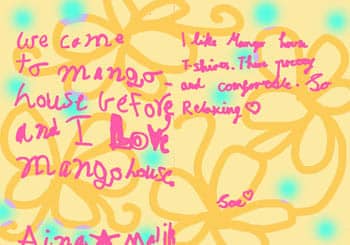 We came
to mango
house before
and I Love
mango house
Aina★malik
I like Mango house
T-shirts. Their pretty
and comfortable. So
Relaxing♡
Sae♡